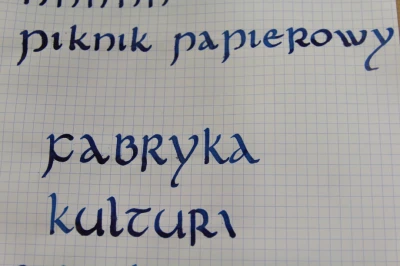 piknik papierowy
fabryka
kulturi